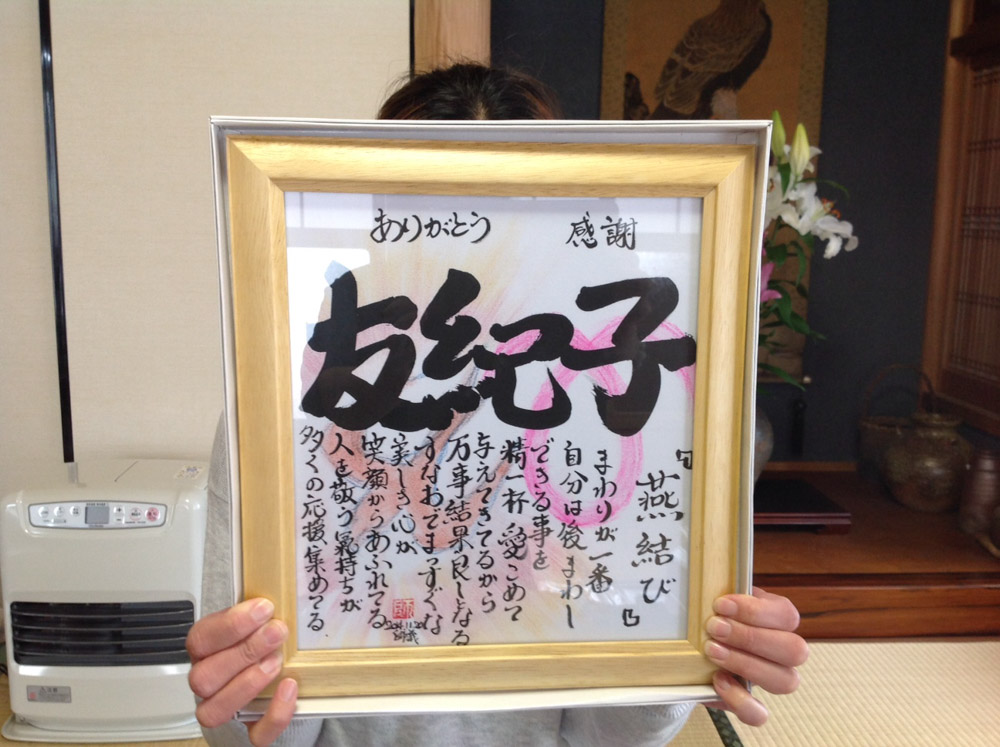 ありがとう 感謝
友紀子
「燕結び」
まわりが一番
自分は後まわし
できる事を
精一杯愛こめて
与えてきてるから
万事結果良しとなる
すなおでまっすぐな
美しき心が
笑顔からあふれてる
人を敬う氣持ちが
多くの応援集めてる